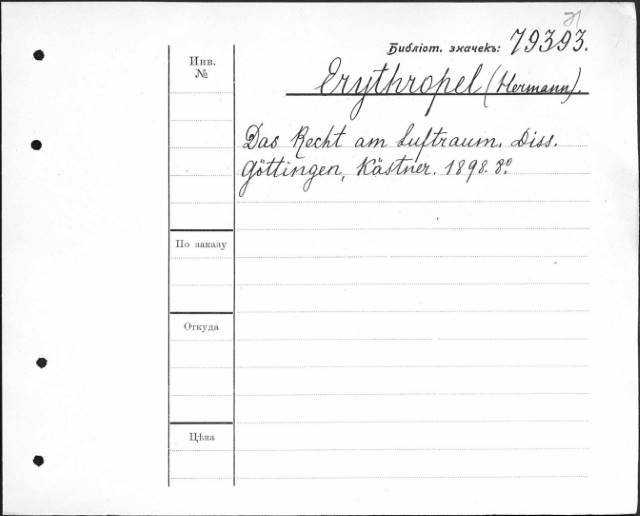 Библіот. значекъ: 79393.
Инв.
№
Erythropel (Hermann).
Das Recht am Luftraum. Diss.
Göttingen, Kästner. 1898. 8°.
По заказу
Откуда
Цѣна